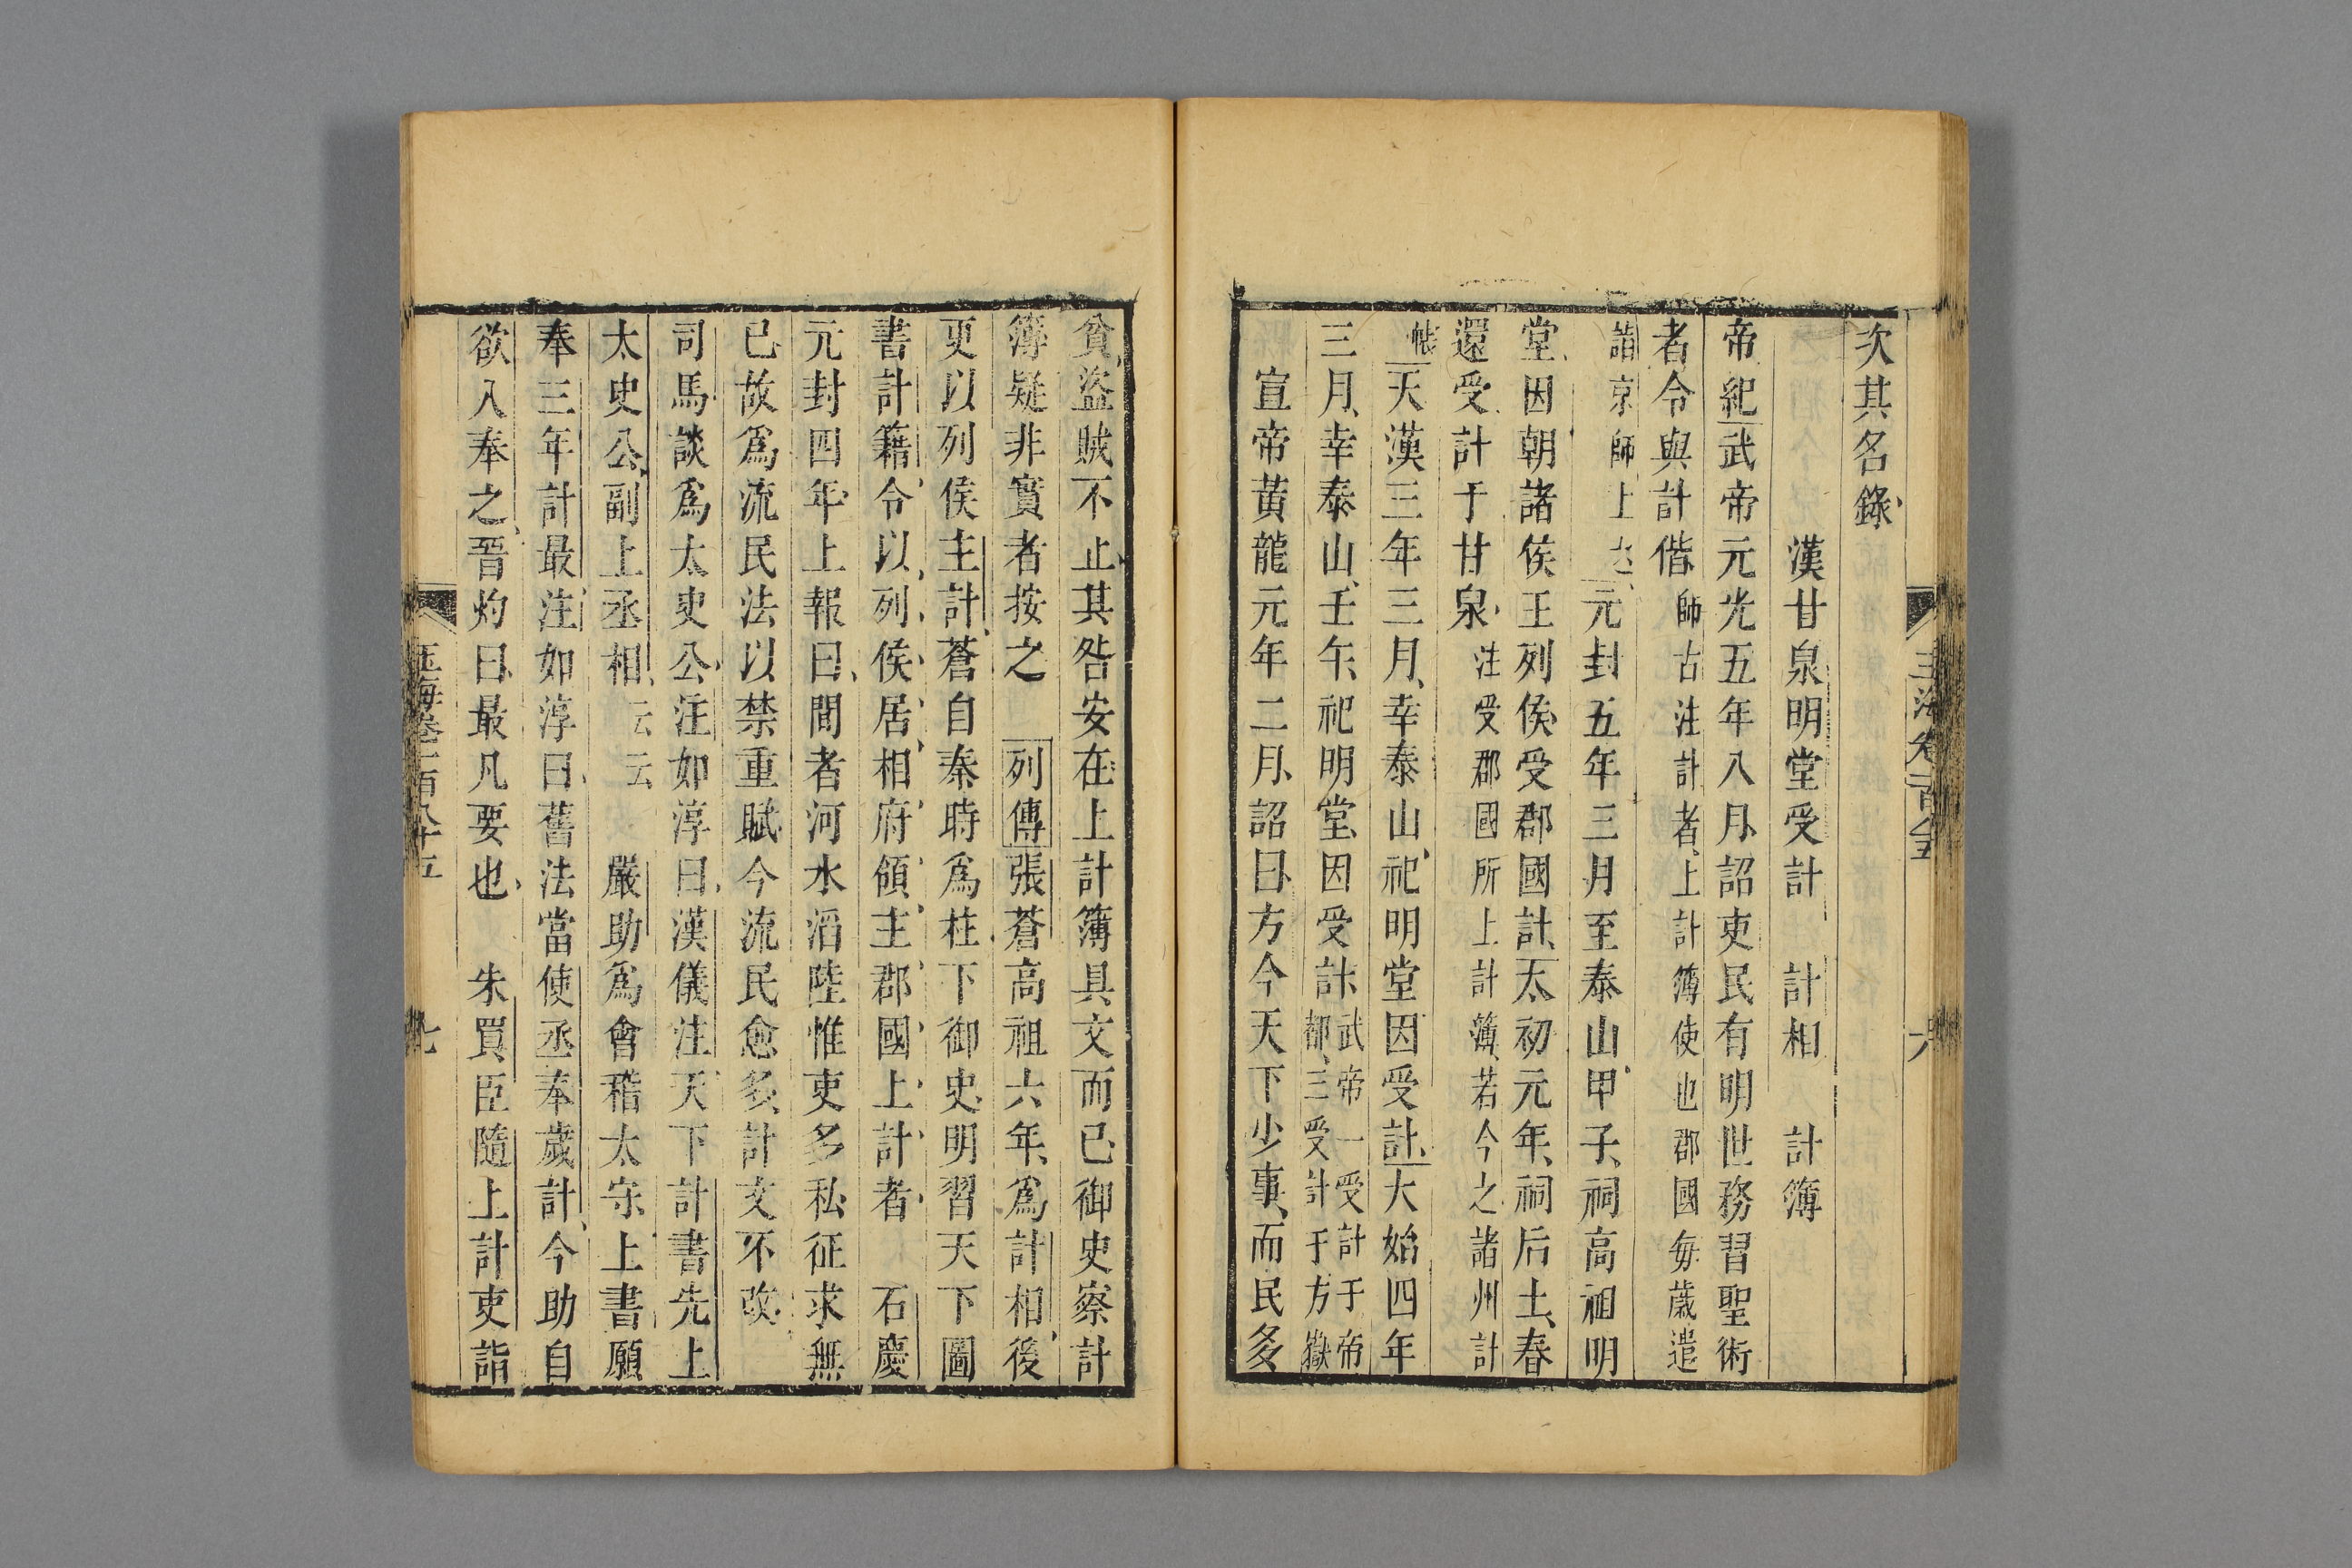 玉海卷一百八十五
六
次其名錄
漢甘泉明堂受計 計相 計簿
帝紀武帝元光五年八月詔吏民有明世務習聖術
者令與計偕師古注計者上計簿使也郡國每歲遣
詣京師上之元封五年三月至泰山甲子祠高祖明
堂因朝諸侯王列侯受郡國計太初元年祠后土春
還受計于甘泉注受郡國所上計簿若今之諸州計
帳天漢三年三月幸泰山祀明堂因受計大始四年
三月幸泰山壬午祀明堂因受計武帝一受計于帝
都三受計于方嶽
宣帝黃龍元年二月詔曰方今天下少事而民多
貧盜賊不止其咎安在上計簿具文而已御史察計
簿疑非實者按之 列傳張蒼高祖六年爲計相後
更以列侯主計蒼自秦時爲柱下御史明習天下圖
書計籍令以列侯居相府領主郡國上計者 石慶
元封四年上報曰間者河水滔陸惟吏多私征求無
已故爲流民法以禁重賦今流民愈多計文不改
司馬談爲太史公注如淳曰漢儀注天下計書先上
太史公副上丞相云云 嚴助爲會稽太守上書願
奉三年計最注如淳曰舊法當使丞奉歲計今助自
欲入奉之晉灼曰最凡要也 朱買臣隨上計吏詣
玉海卷一百八十五
七